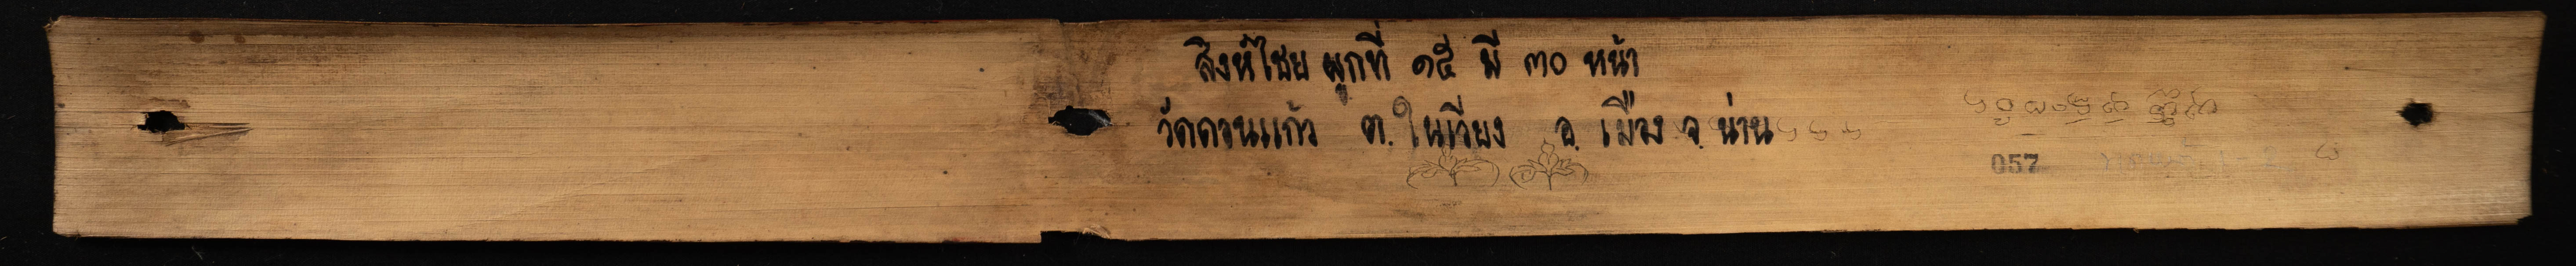 สิงห์ไชย ผูกที่ ๑๕ มี ๓๐ หน้า
วัดดอนแก้ว ต. ในเวียง อ. เมือง จ. น่าน
057